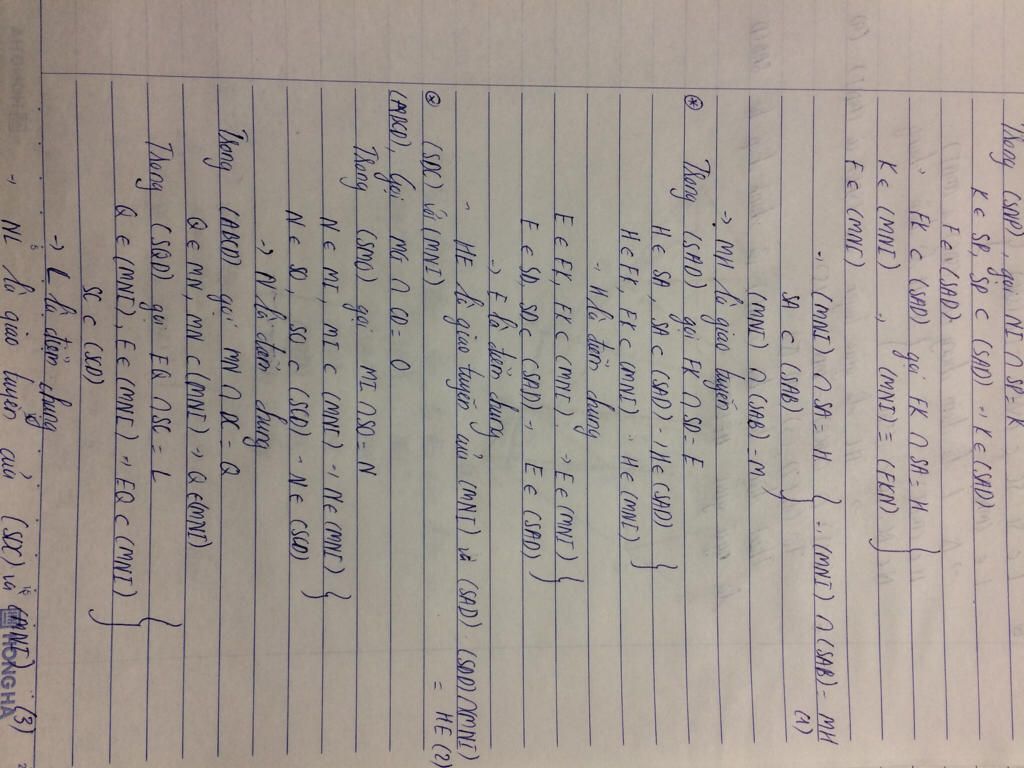 Trong (SNP), gọi NI ∩ SP = K
K ∈ SP, SP ⊂ (SAD) → K ∈ (SAD)
F ∈ (SAD)
FK ⊂ (SAD) gọi FK ∩ SA = H
K ∈ (MNI) → (MNI) ≡ (FKN)
F ∈ (MNI)
→ (MNI) ∩ SA = H
SA ⊂ (SAB) → (MNI) ∩ (SAB) = MH
(MNI) ∩ (SAB) = M (1)
→ MH là giao tuyến
⊛ Trong (SAD) gọi FK ∩ SD = E
H ∈ SA, SA ⊂ (SAD) → H ∈ (SAD)
H ∈ FK, FK ⊂ (MNI) → H ∈ (MNI)
→ H là điểm chung
E ∈ FK, FK ⊂ (MNI) → E ∈ (MNI)
E ∈ SD, SD ⊂ (SAD) → E ∈ (SAD)
→ E là điểm chung
→ HE là giao tuyến của (MNI) và (SAD). (SAD) ∩ (MNI)
= HE (2)
⊛ (SDC) và (MNI)
(ABCD), Gọi MG ∩ CD = O
Trong (SMO) gọi MI ∩ SO = N
N ∈ MI, MI ⊂ (MNI) → N ∈ (MNI)
N ∈ SO, SO ⊂ (SCD) → N ∈ (SCD)
→ N là điểm chung
Trong (ABCD) gọi MN ∩ DC = Q
Q ∈ MN, MN ⊂ (MNI) → Q ∈ (MNI)
Trong (SQD) gọi EQ ∩ SC = L
Q ∈ (MNI), E ∈ (MNI) → EQ ⊂ (MNI)
SC ⊂ (SCD)
→ L là điểm chung
→ NL là giao tuyến của (SDC) và (MNI) (3)
HONGHA